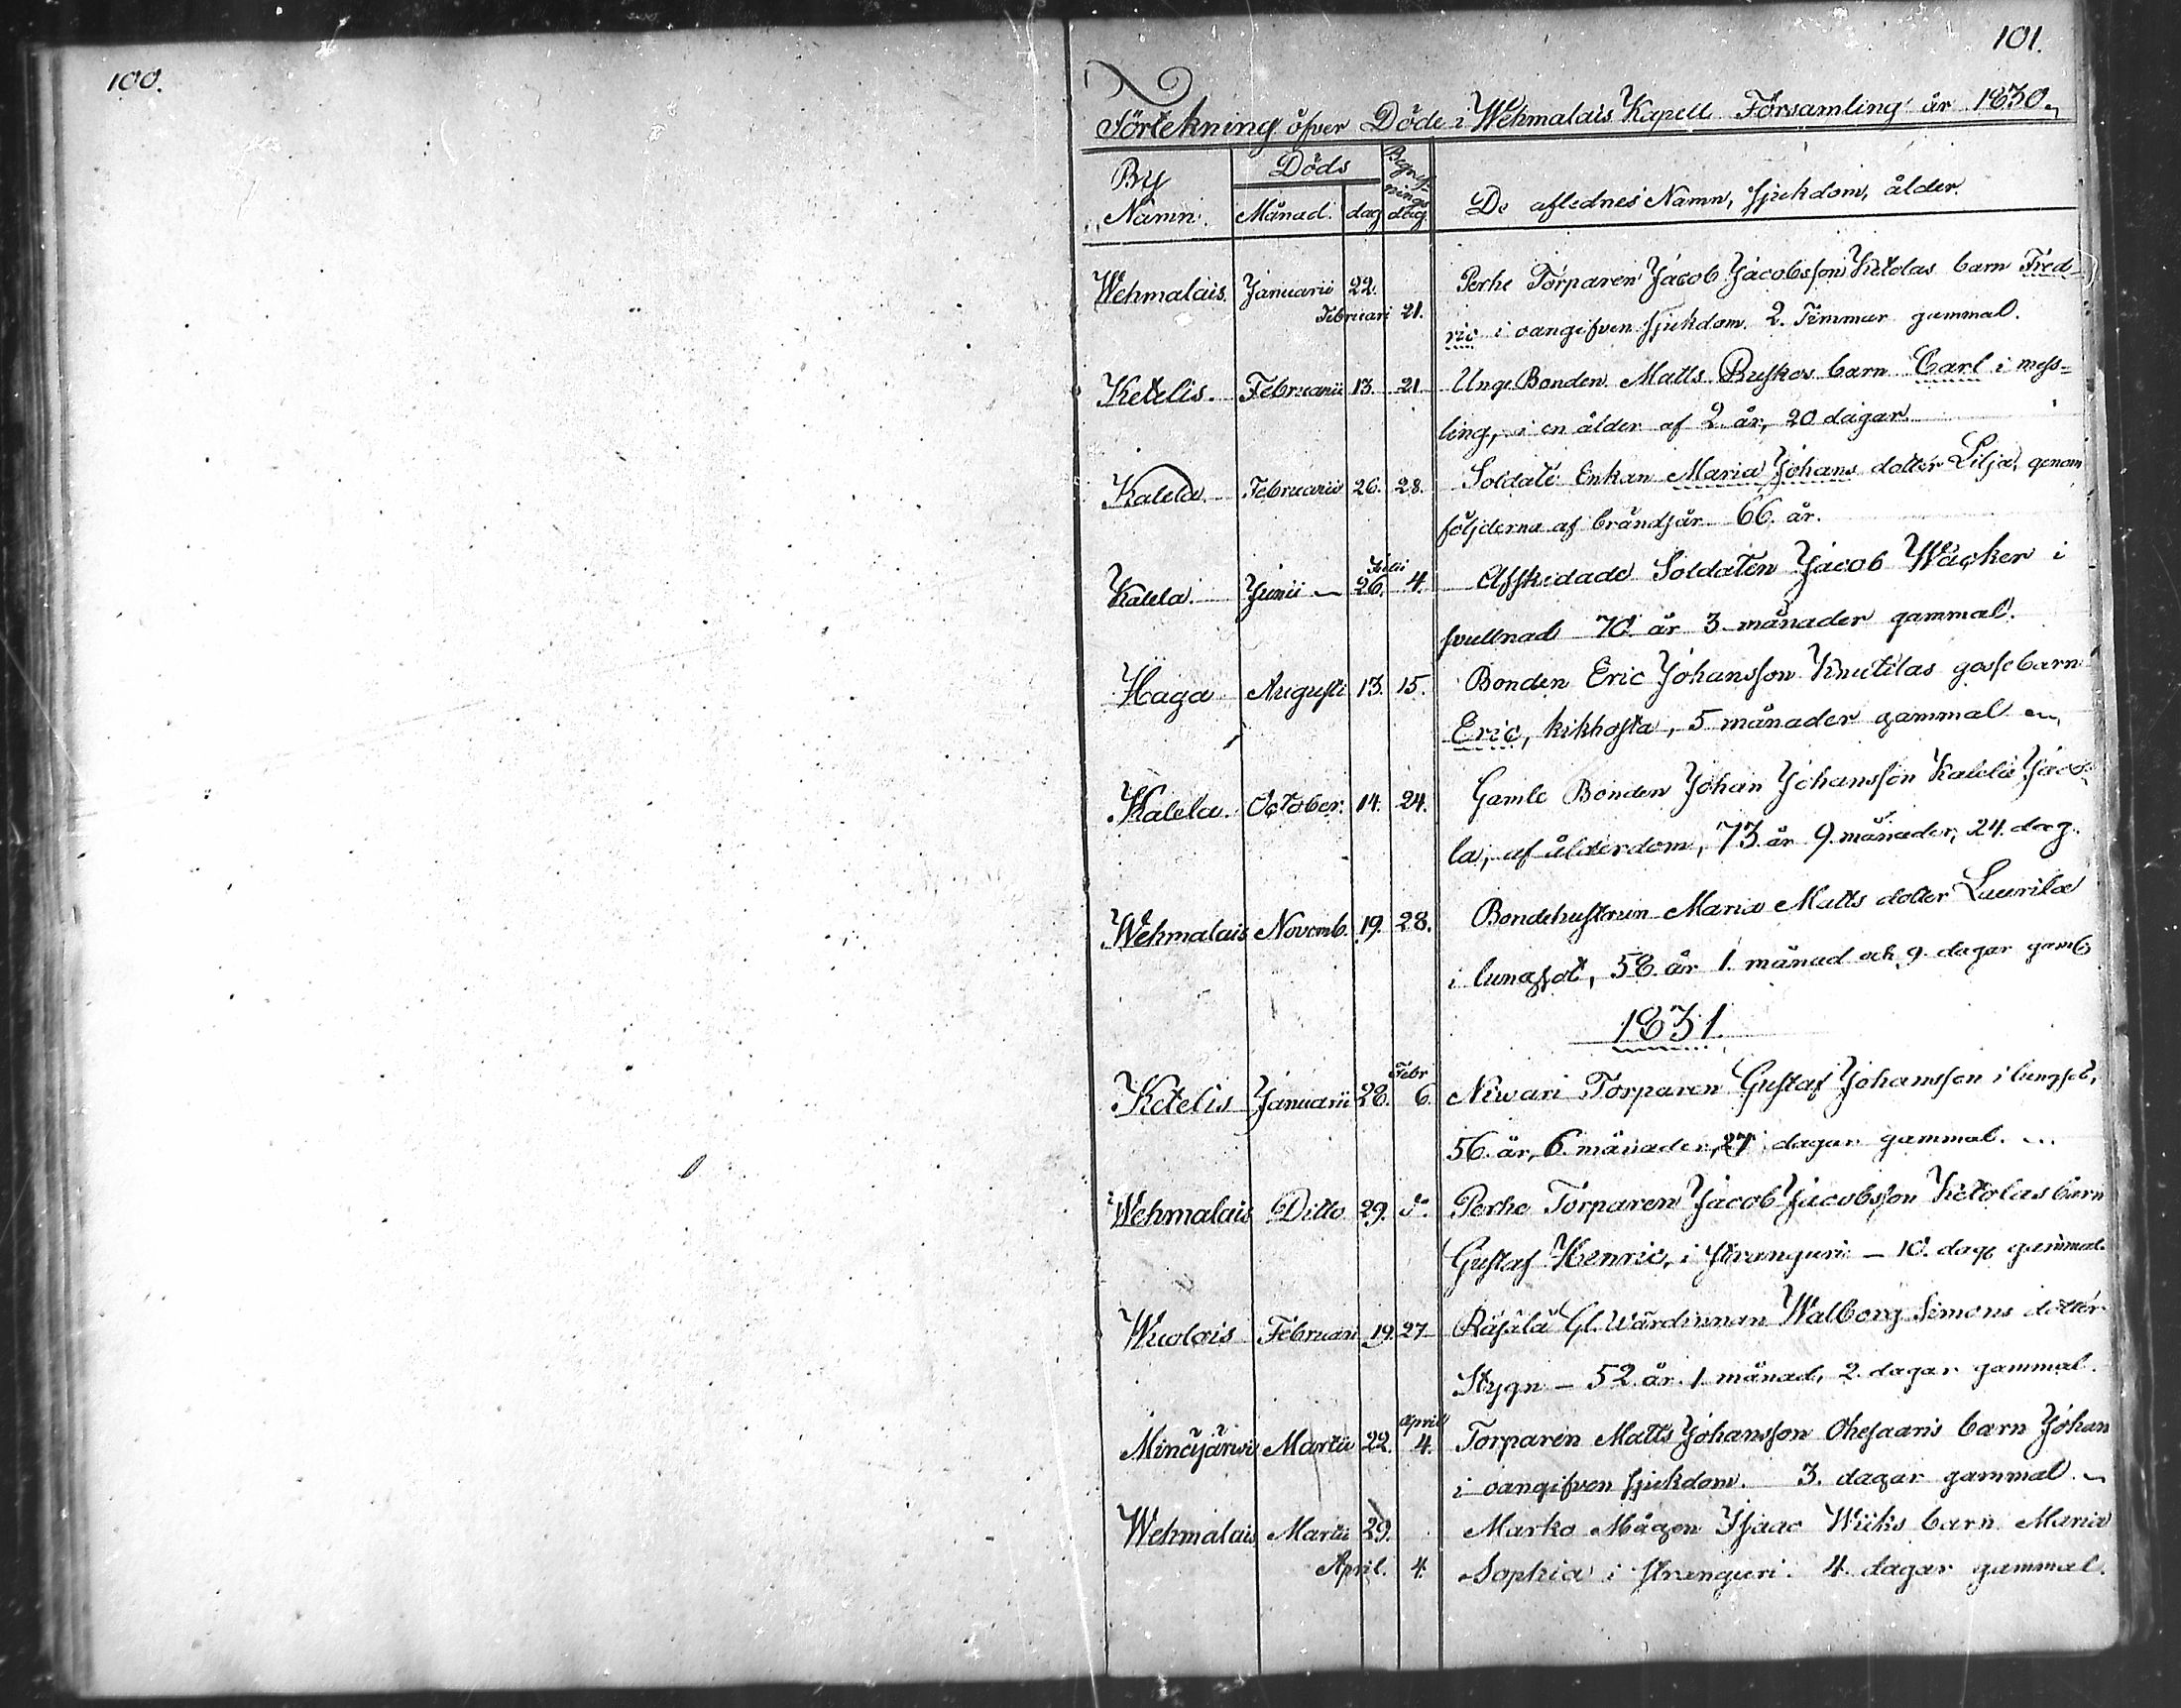 100.
101.
Förtekning öfver Döde i Wehmalais Kapell Församling år 1830.
By Namn. Döds Månad. dag Begrafnings dag De aflednes Namn, sjukdom, ålder.
Wehmalais Januarii 22. Perhe Torparen Jacob Jacobsson Ketolas barn Fred-
Februari 21. ric i oangifven sjukdom. 2. Timmar gammal.
Ketelis. Februarii 13. 21 Unge Bonden Matts Buskos barn Carl i mess=
ling, i en ålder af 2 år, 20 dagar.
Kalela. Februarii 26. 28. Soldate Enkan Maria Johans dotter Lilja, genom
följderna af brändsår 66. år.
Julii
Kalela. Junii 26. 4. Afskedade Soldaten Jacob Wacker i
svullnad 70. år 3 månader gammal.
Haga Augusti 13. 15. Bonden Eric Johansson Knutilas gossebarn
Eric, kikhosta, 5 månader gammal
Kalela. October. 14. 24. Gamle Bonden Johan Johansson Kalela Jaco
la, af ålderdom, 73. år 9. månader, 24. dag.
Wehmalais Novemb. 19. 28. Bondehustrun Maria Matts dotter Laurila
i lungsot, 58. år 1. månad och 9. dagar gaml
1831.
Febr
Ketelis Januarii 28. 6. Niwari Torparen Gustaf Johansson i lungsot,
56. år, 6. månader, 27 dagar gammal.
Wehmalais Ditto 29. d:o Perhe Torparen Jacob Jacobsson Ketolas barn
Gustaf Henric, i stranguri - 10. dag gammal.
Wuolais Februarii 19. 27 Räsälä Gl. Wärdinnan Walborg Simons dotter
Stygn - 52 år. 1 månad, 2. dagar gammal.
April
Mincijärwi Martii 22. 4. Torparen Matts Johansson Ohesaaris barn Johan
i oangifven sjukdom. 3. dagar gammal
Wehmalais Martii 29. Marko Mågen Isaac Wiiks barn Maria
April. 4. Sophia i stranguri. 4. dagar gammal.